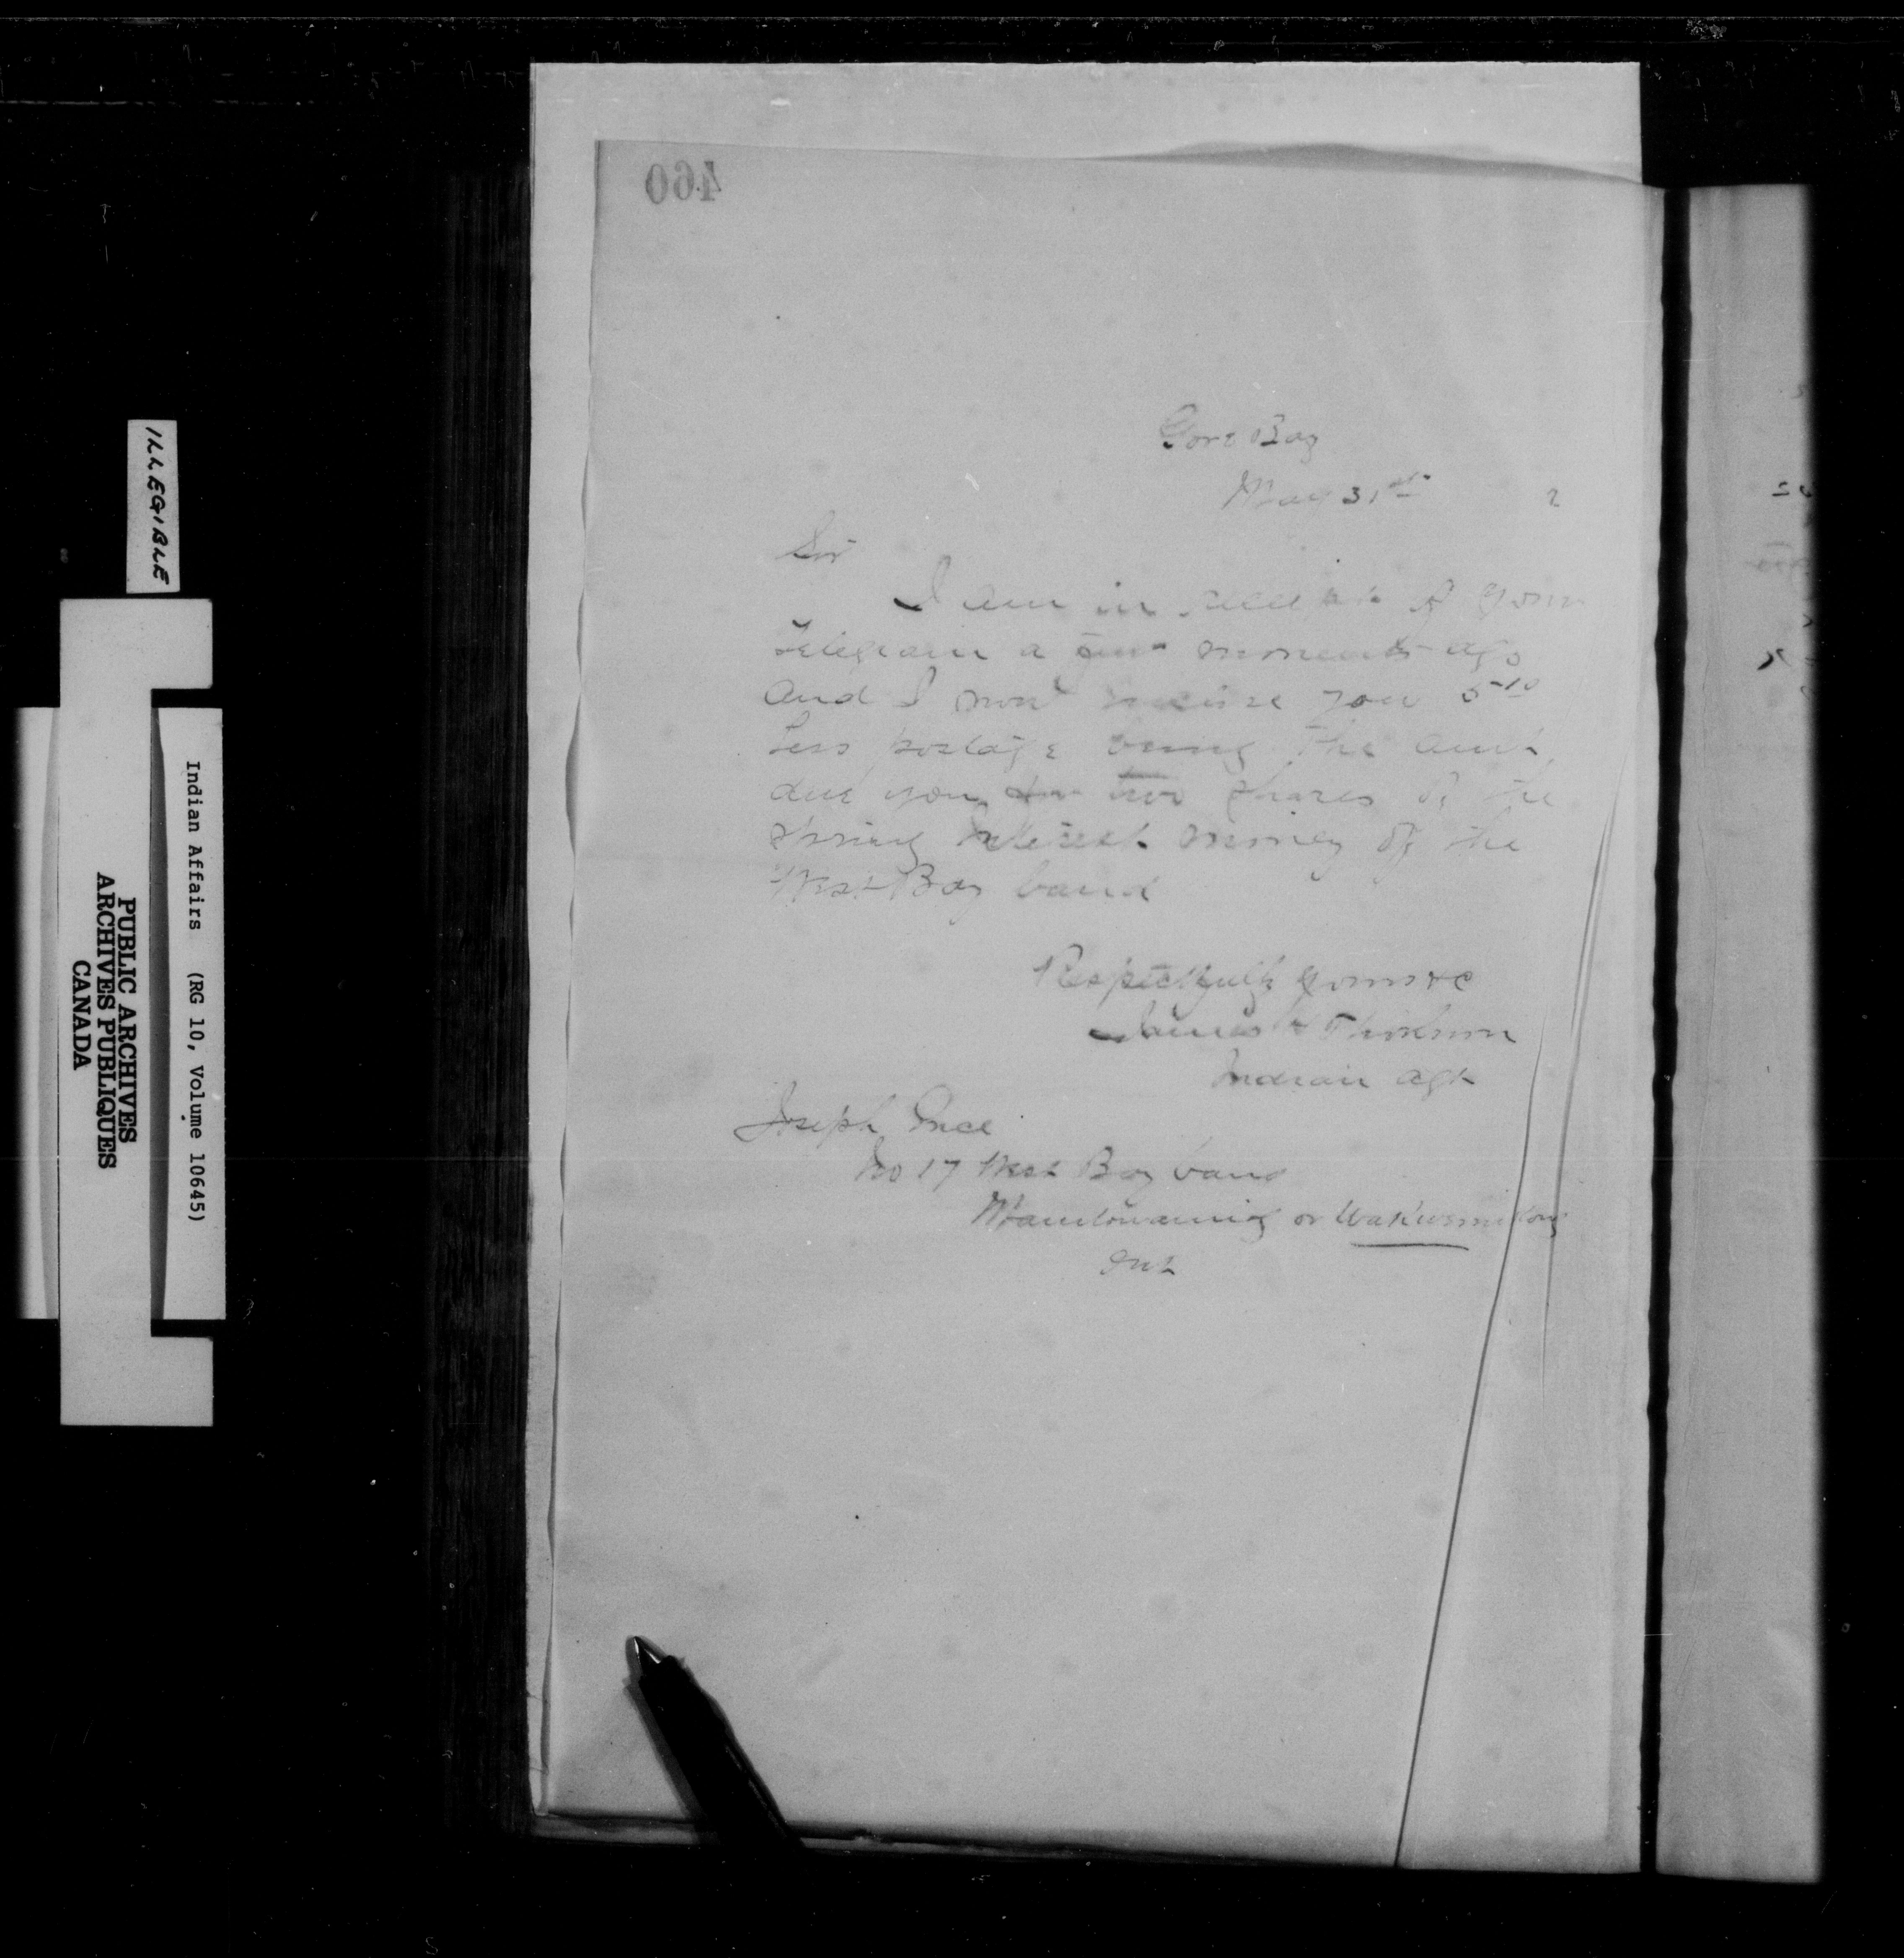 460
Gore Bay
May 31st 2
Sir
I am in receipt of your
Telegram a few moments ago
and I now you 5 10
Less postage being the amt
due you for two shares of the
Spring Interest money of the
West Bay band
Respectfully yours &c
James H Thorburn
Indian Agt
Joseph
No 17 West Bay band
Manitowaning or
Ont
ILLEGIBLE
Indian Affairs (RG 10, Volume 10645)
PUBLIC ARCHIVES
ARCHIVES PUBLIQUES
CANADA